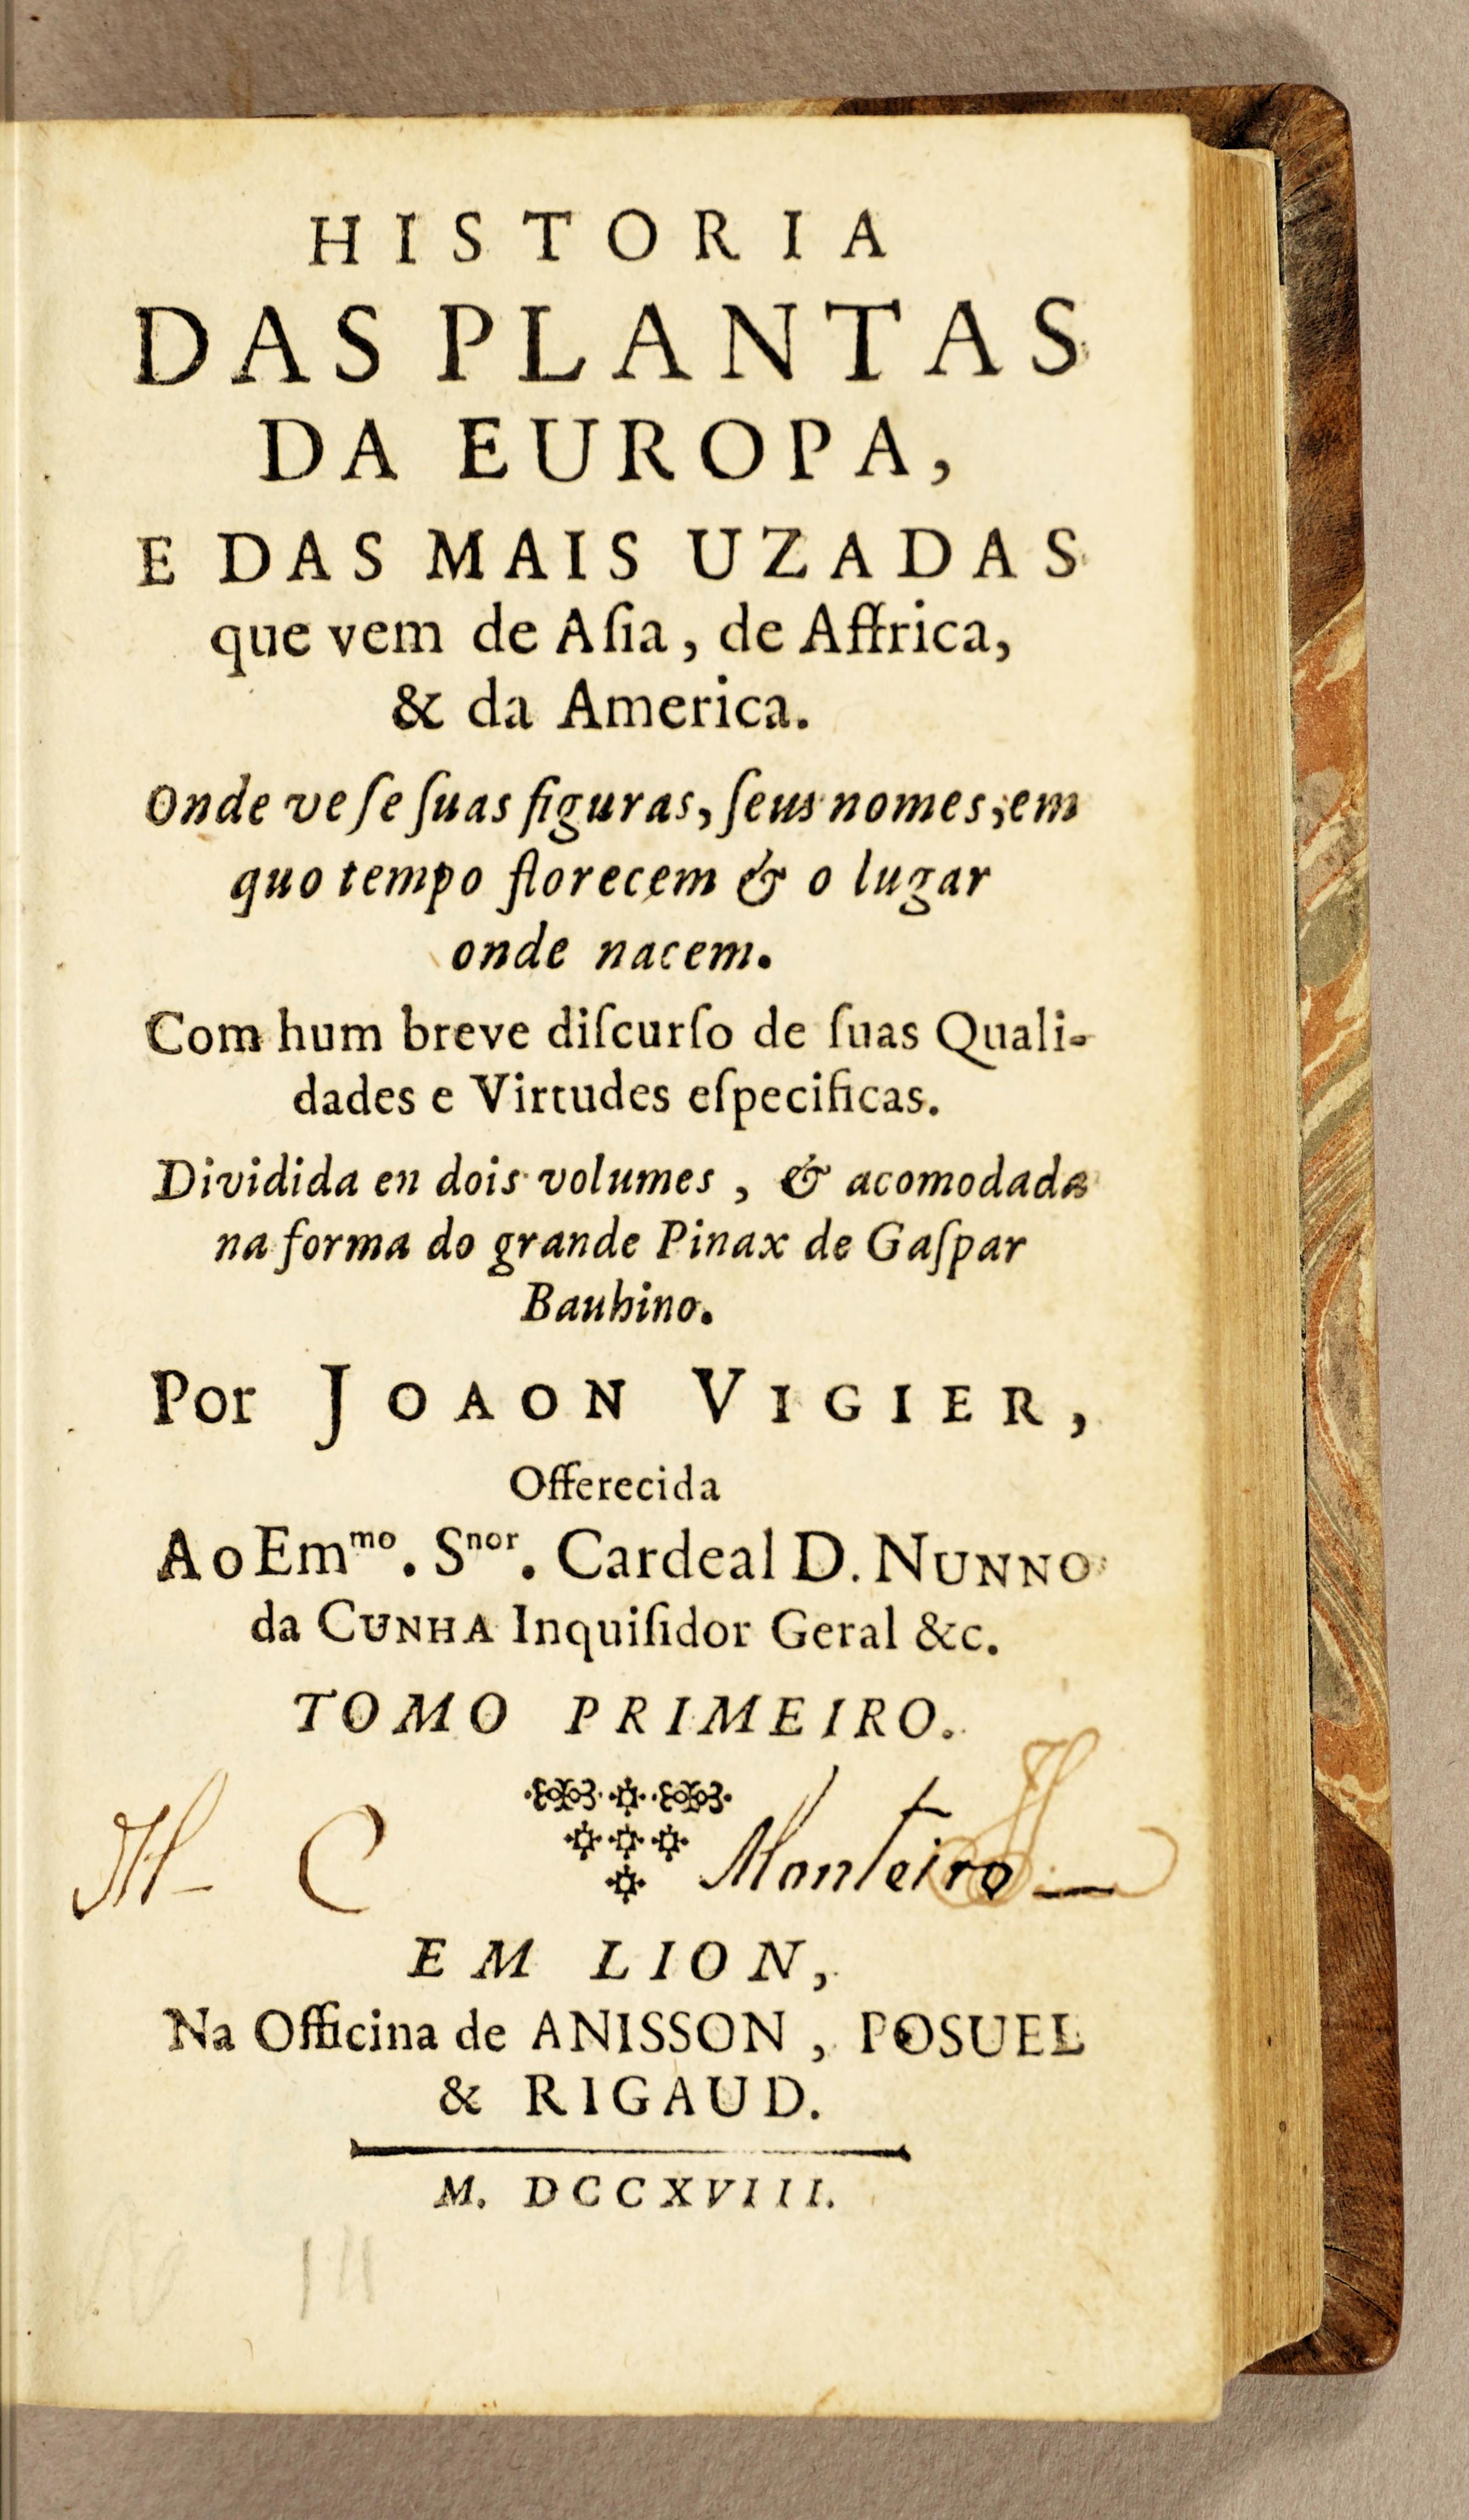 HISTORIA
DAS PLANTAS
DA EUROPA,
E DAS MAIS UZADAS
que vem de Aſia, de Affrica,
& da America.
Onde ve ſe ſuas figuras, ſeus nomes, em
quo tempo florecem & o lugar
onde nacem.
Com hum breve diſcurſo de ſuas Quali-
dades e Virtudes eſpecificas.
Dividida en dois volumes, & acomodada
na forma do grande Pinax de Gaſpar
Bauhino.
Por JOAON VIGIER,
Offerecida
Ao Emmo. Snor. Cardeal D. NUNNO
da CUNHA Inquiſidor Geral &c.
TOMO PRIMEIRO.
H C Monteiro
EM LION,
Na Officina de ANISSON, POSUEL
& RIGAUD.
M. DCCXVIII.